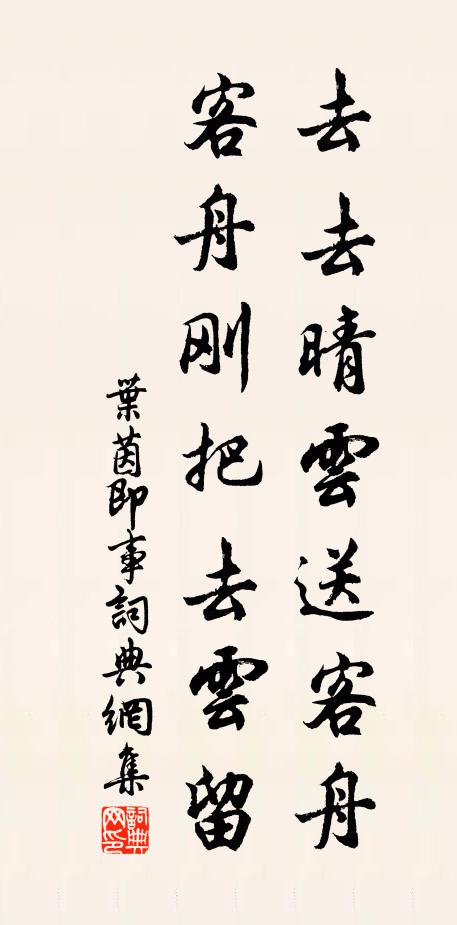 去去晴雲送客舟
客舟刚把去雲留
葉茵即事詞典網集
詞典网印